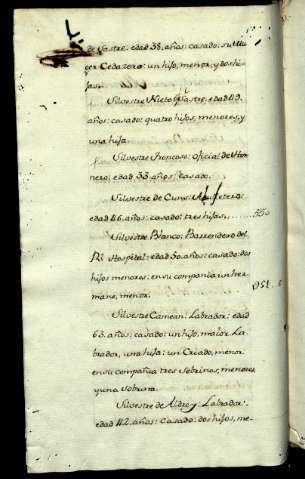 de Sastre: edad 38. años: casado: su Mu
ger Cedazera: un hijo, menor, y dos hi
jas.
Silvestre Nieto Sastre: edad 49.
años: casado: quatro hijos, menores, y
una hija.
Silvestre Troncoso: oficial de Hor
nero: edad 33. años: casado.
Silvestre de Cuns:
edad 46. años: casado: tres hijas, 550
Silvestre Blanco: Barrendero del
Rl. Hospital: edad 50. años: casado: dos
hijos menores: en su compañia un her
mano, menor.
Silvestre Camean: Labrador: edad
63. años: casado: un hijo, maior La
brador, una hija: un Criado, menor
en su compañia tres sobrinos, menores
y una sobrina.
Silvestre de Aldrey: Labrador:
edad 42. años: Casado: dos hijos, me-